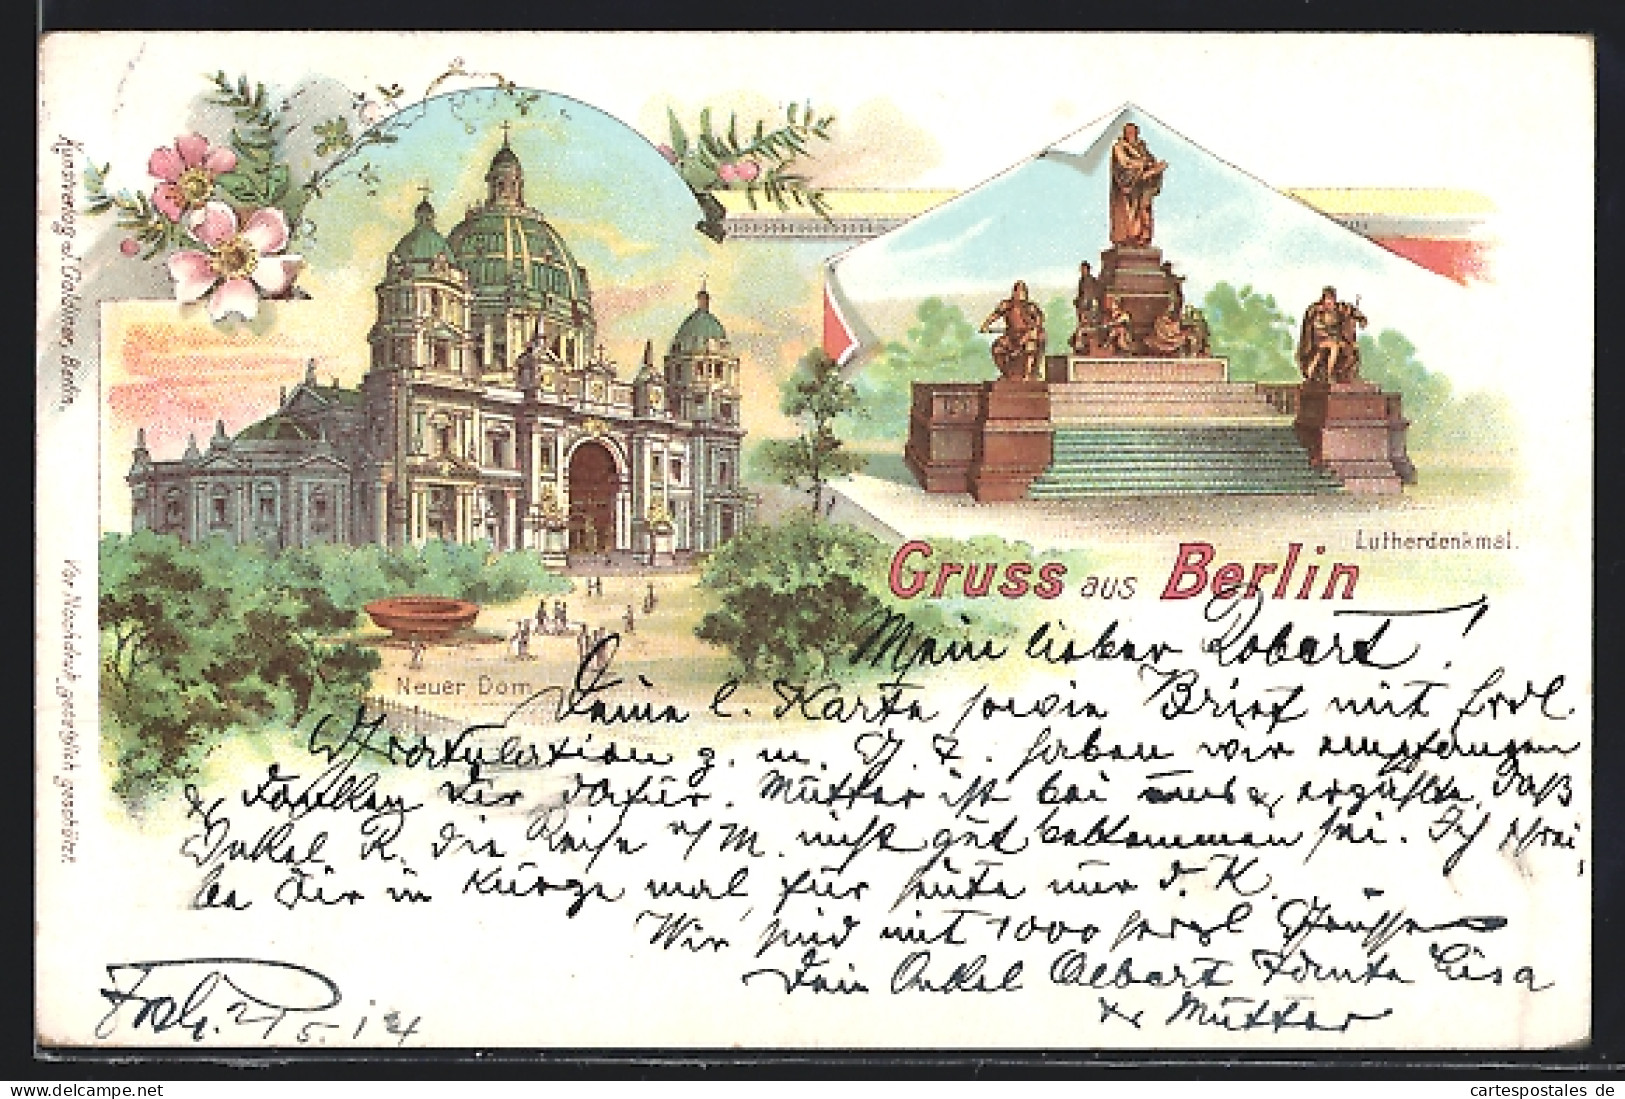 Kunstverlag J. Goldiner, Berlin.
Vor Nachdruck gesetzlich geschützt.
Lutherdenkmal.
Gruss aus Berlin
Neuer Dom
Mein lieber Robert!
Deine l. Karte sowie Brief mit frdl.
Gratulation z. m. G. T. haben wir empfangen
& danken Dir dafür. Mutter ist bei uns & erzählte, daß
Onkel R. die Reise n/M. nicht gut bekommen sei. Ich schrei-
be Dir in Kürze mal, für heute nur d. K.
Wir sind mit 1000 herzl. Grüssen
Dein Onkel Albert Tante Lisa
& Mutter
21/5.
cartespostales de